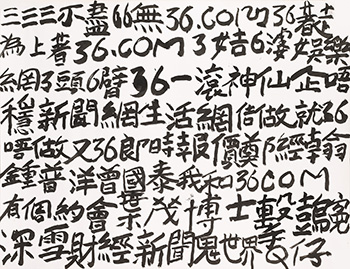 三三三不盡66無36.COM36
為上著36.COM3姑6婆娛樂
網3頭6臂36一滾神仙企唔
穩新聞網生活網信做就36
唔做又36即時報價經翰
鍾普洋曾國泰我和36COM
有個約會葉茂博士
深雪財經新聞鬼世界仔